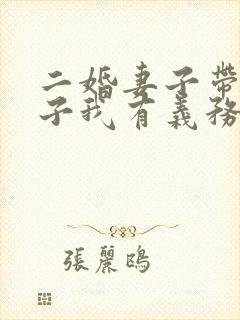 二婚妻子帶
子我有義務
張麗鴎